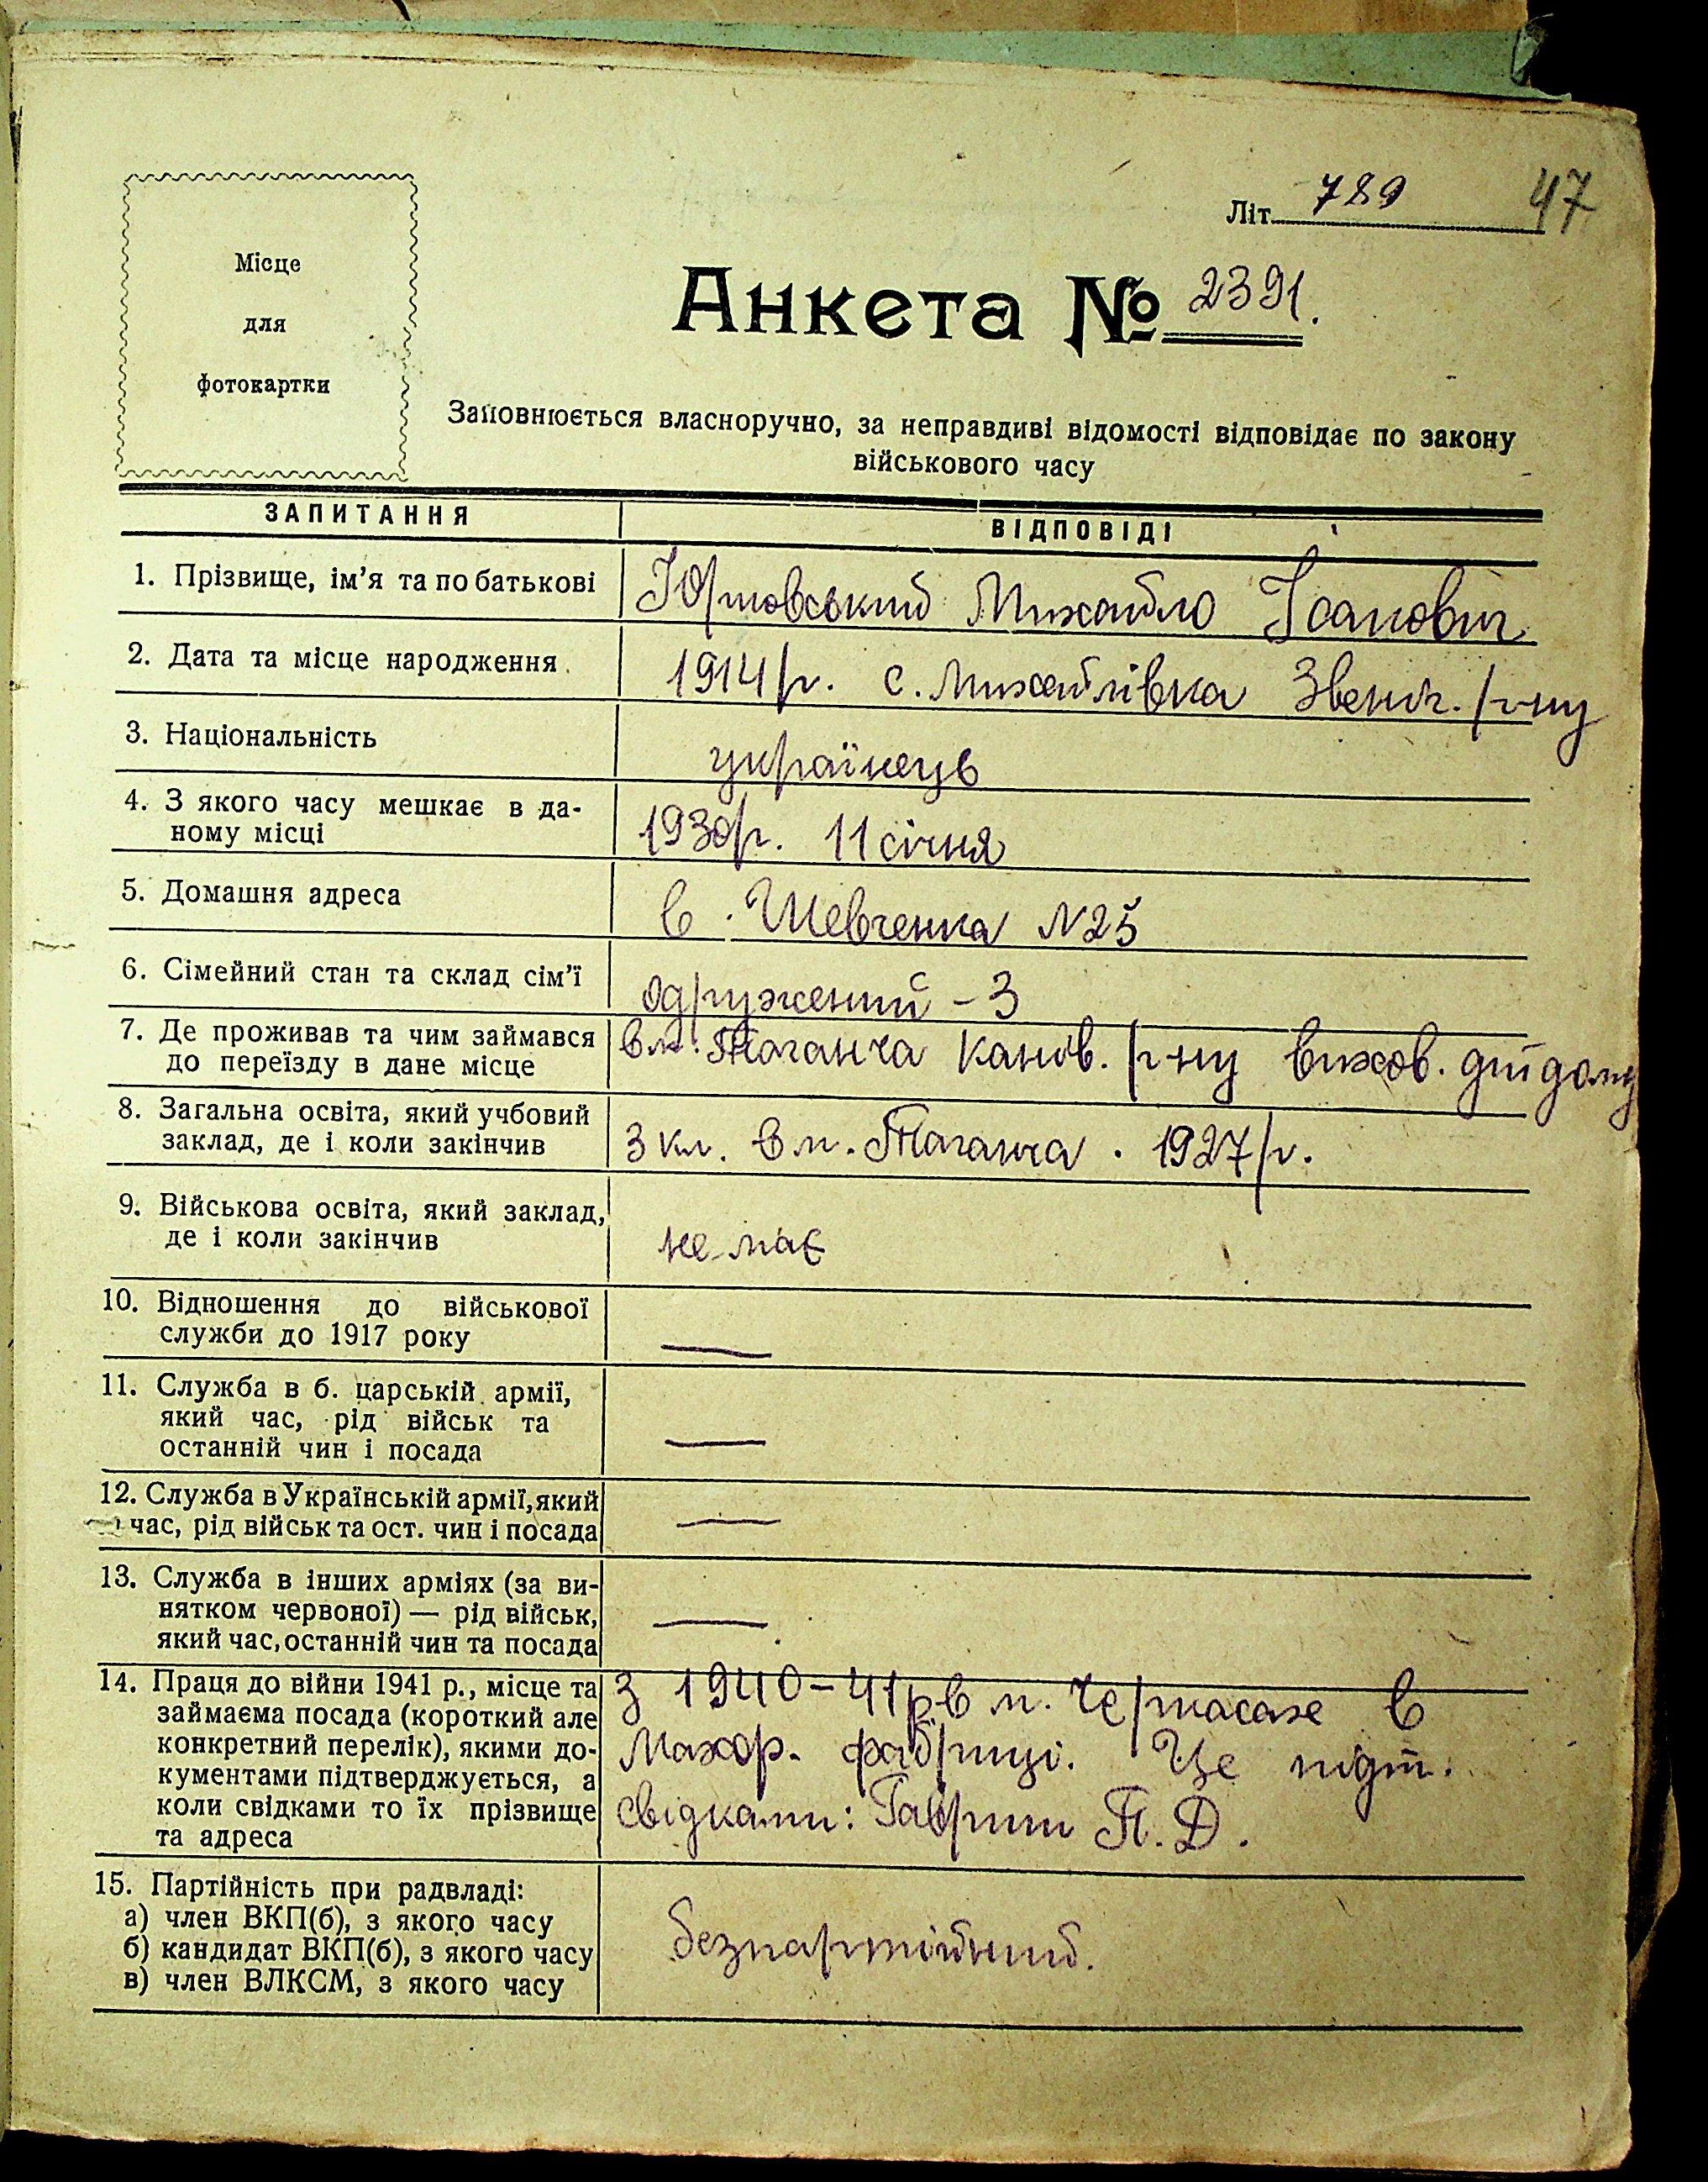 47
Літ. 789
Місце
для
фотокартки
Анкета № 2391.
Заповнюється власноручно, за неправдиві відомості відповідає по закону
військового часу
ЗАПИТАННЯ ВІДПОВІДІ
1. Прізвище, ім'я та по батькові Юртовський Михайло Ісакович
2. Дата та місце народження 1914 р. с. Михайлівка Звениг. р-ну
3. Національність українець
4. З якого часу мешкає в да-
ному місці 1930 р. 11 січня
5. Домашня адреса в. Шевченка N 25
6. Сімейний стан та склад сім'ї одружений – 3
7. Де проживав та чим займався
до переїзду в дане місце в м. Таганча Канів. р-ну вихов. дитдому
8. Загальна освіта, який учбовий
заклад, де і коли закінчив 3 кл. в м. Таганча. 1927 р.
9. Військова освіта, який заклад,
де і коли закінчив не має
10. Відношення до військової
служби до 1917 року —
11. Служба в б. царській армії,
який час, рід військ та
останній чин і посада —
12. Служба в Українській армії, який
час, рід військ та ост. чин і посада —
13. Служба в інших арміях (за ви-
нятком червоної) — рід військ,
який час, останній чин та посада —
14. Праця до війни 1941 р., місце та З 1940–41 р в м. Черкасах в
займаєма посада (короткий але
конкретний перелік), якими до- Махор. фабриці. Це підт.
кументами підтверджується, а
коли свідками то їх прізвище свідками: Гавриш П. Д.
та адреса
15. Партійність при радвладі:
а) член ВКП(б), з якого часу
б) кандидат ВКП(б), з якого часу безпартійний.
в) член ВЛКСМ, з якого часу